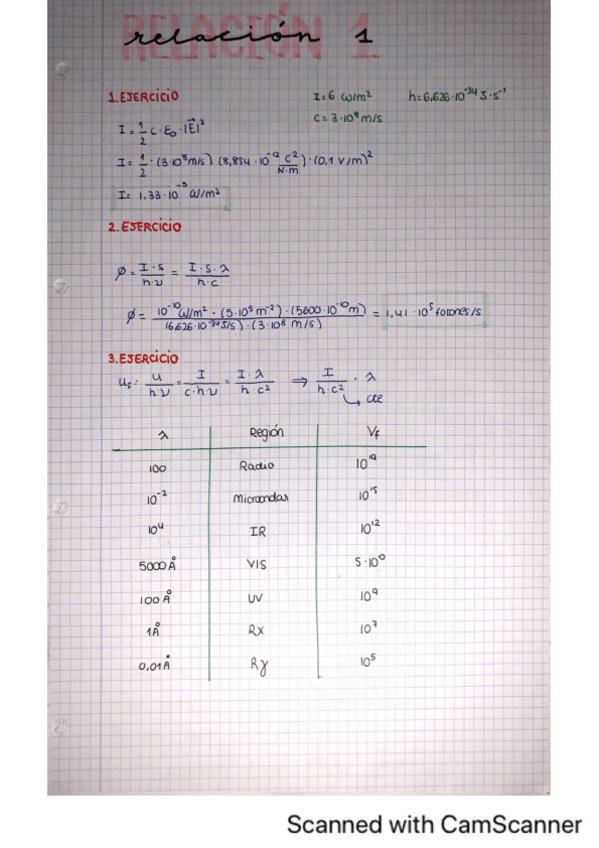 RELACIÓN 1
relación 1
1. EJERCICIO
I = 6 W/m² h = 6,626·10⁻³⁴ J·s⁻¹
C = 3·10⁸ m/s
I = 1/2 c·ε₀·|E⃗|²
I = 1/2 · (3·10⁸ m/s) (8,854·10⁻¹² C²/N·m) · (0,1 V/m)²
I = 1,33·10⁻⁵ W/m²
2. EJERCICIO
φ = I·S/h·ν = I·S·λ/h·c
φ = 10⁻¹⁰ W/m² · (5·10⁵ m⁻²) · (5600·10⁻¹⁰ m)/(6,626·10⁻³⁴ J/s) · (3·10⁸ m/s) = 1,41·10⁵ fotones/s
3. EJERCICIO
u_f = u/hν = I/c·h·ν = I·λ/h·c² ⇒ I/h·c² · λ
↳ cte
λ Región V_f
100 Radio 10¹⁹
10⁻² Microondas 10¹⁵
10⁴ IR 10¹²
5000 Å VIS 5·10¹⁰
100 Å UV 10⁹
1 Å Rx 10⁷
0,01 Å Rγ 10⁵
Scanned with CamScanner